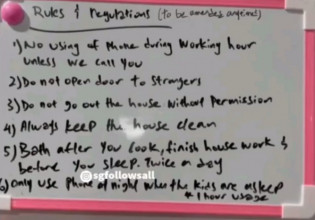 Rules & Regulations (to be amended anytime)
1) No using of Phone during working hour
unless we call you
2) Do not open door to strangers
3) Do not go out the house without permission
4) Always keep the house clean
5) Bath after you cook, finish house work &
before you sleep. Twice a day
@sgfollowsall
6) only use phone at night when the kids are asleep
* 1 hour usage